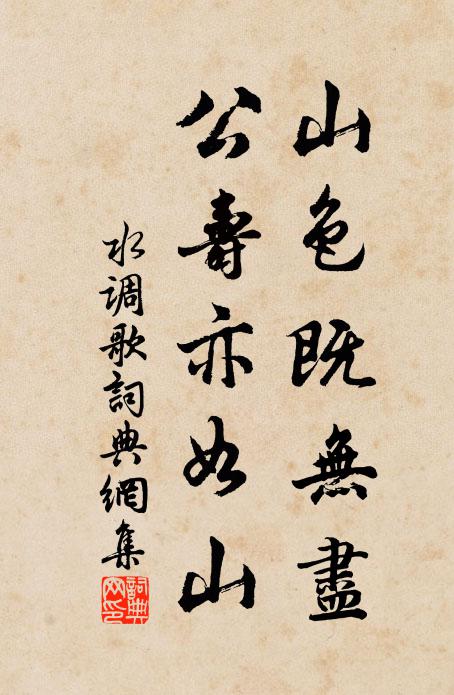 山色既無盡
公壽亦如山
水调歌詞典網集
詞典網印